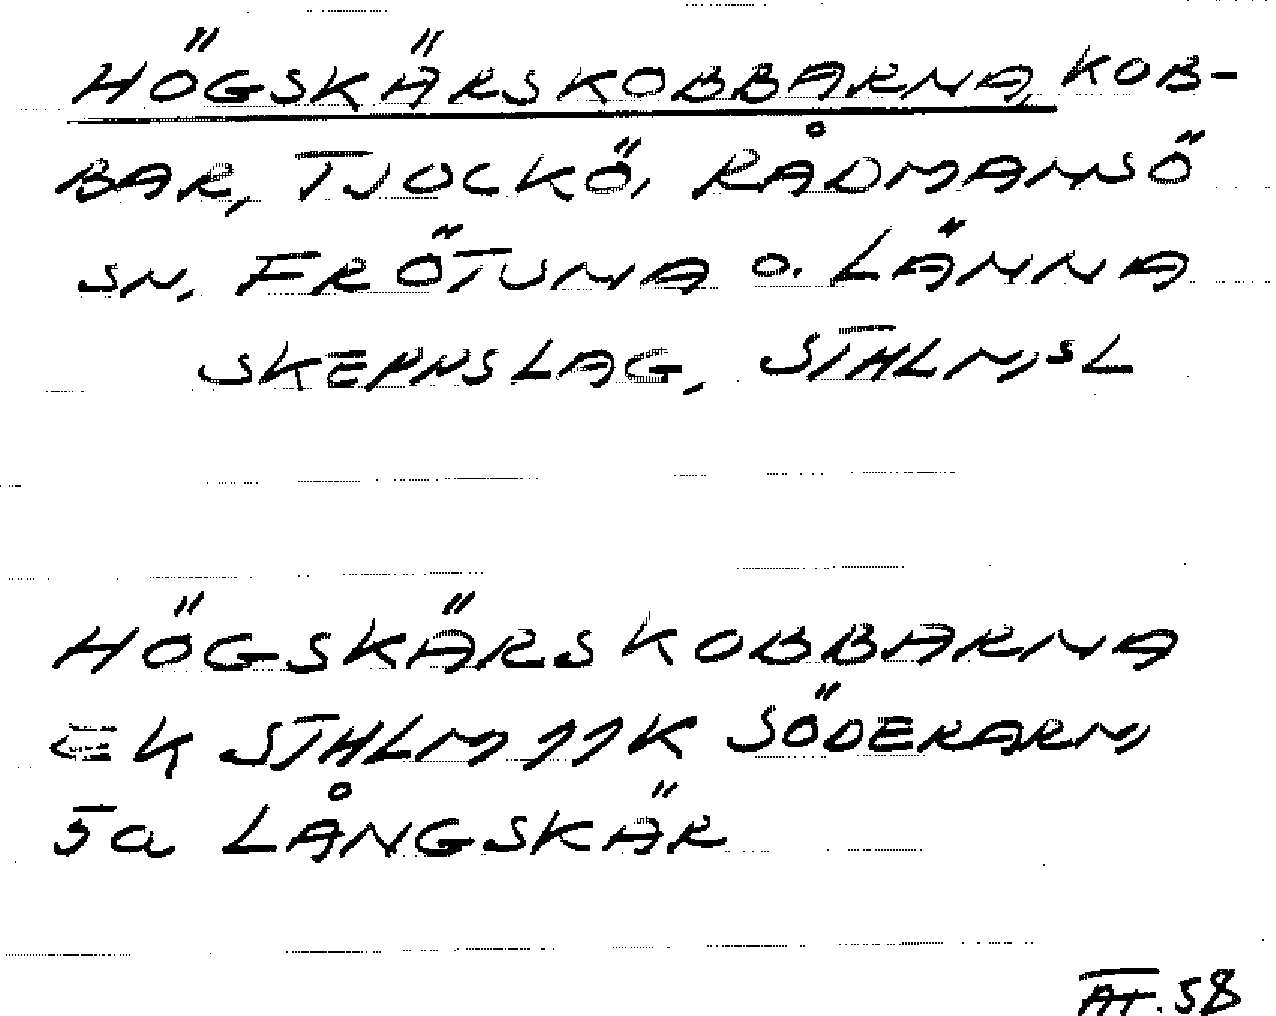 HÖGSKÄRSKOBBARNA, KOB-
BAR, TJOCKÖ, RÅDMANSÖ
SN, FRÖTUNA O. LÄNNA
SKEPPSLAG, STHLMS L
HÖGSKÄRSKOBBARNA
EK STHLM 11K SÖDERARM,
5a LÅNGSKÄR
AT. 58